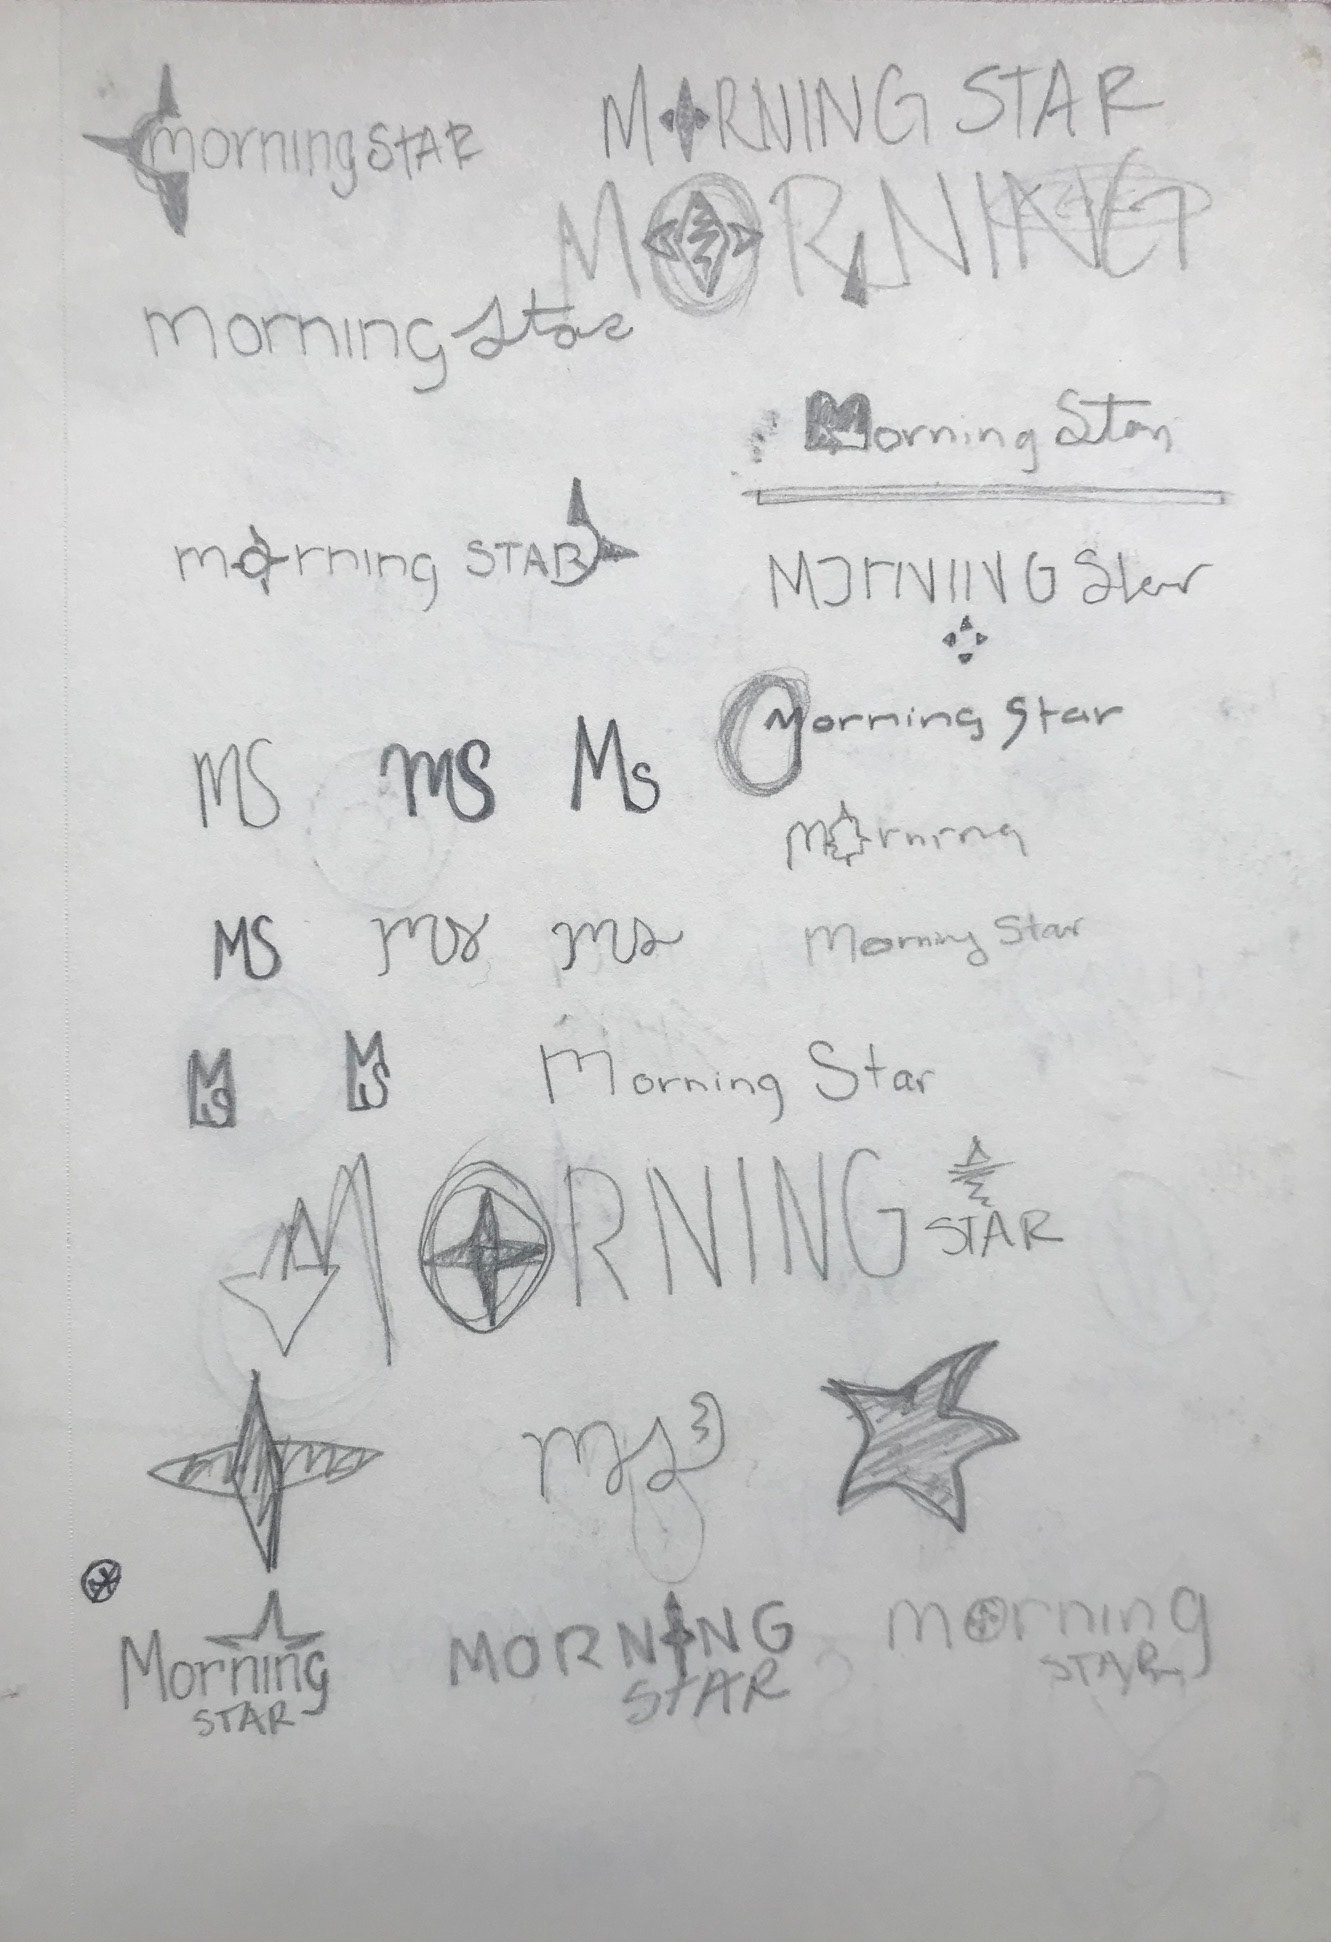 morning STAR
MORNING STAR
MORNING
morning Star
Morning Star
morning STAR
MORNING Star
Morning Star
MS MS Ms
morning
MS ms ms
Morning Star
MS MS
Morning Star
MORNING STAR
ms
Morning
STAR
MORNING
STAR
morning
STAR